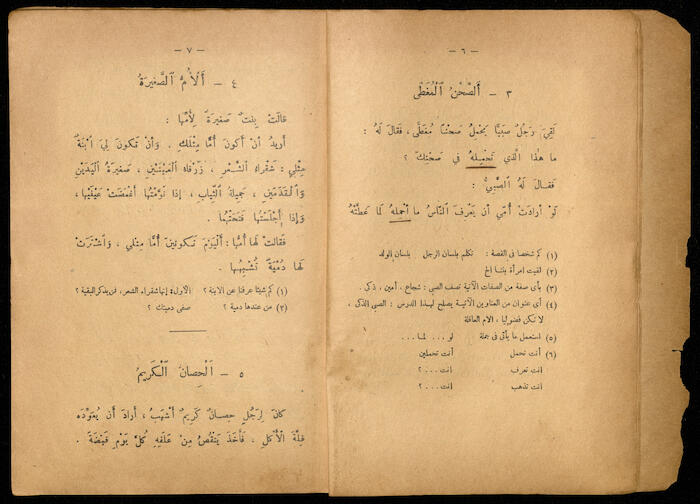 — ٦ —
٣ - اَلصَّحْنُ اَلْمُغَطَّى
لَقِيَ رَجُلٌ صَبِيًّا يَحْمِلُ صَحْنًا مُغَطًّى ، فَقَالَ لَهُ :
ما هٰذا الَّذي تَحْمِلُهُ في صَحْنِكَ ؟
فَقَالَ لَهُ الصَّبِيُّ :
لَوْ أَرادَتْ أُمّي أَن يَعْرِفَ النّاسُ ما أَحْمِلُهُ لَما غَطَّتْهُ
(١) كم شخصا فى القصة : تكلم بلسان الرجل بلسان الولد
(٢) لقيت امرأة بنتا الخ
(٣) بأى صفة من الصفات الآتية تصف الصبى : شجاع ، أمين ، ذكى .
(٤) أى عنوان من العناوين الآتية يصلح لهذا الدرس : الصبى الذكى ،
لا تكن فضوليا ، الام العاقلة
(٥) استعمل ما يأتى فى جملة لو ... لما ...
(٦) أنت تحمل أنت تحملين
انت تعرف انت ... ؟
انت تذهب انت ... ؟
— ٧ —
٤ - اَلْأُمُّ الصَّغيرَةُ
قالَتْ بِنتٌ صَغيرَةٌ لِأُمِّها :
أُريدُ أَنْ أَكونَ أُمًّا مِثْلَكِ . وَأَنْ تَكونَ لِيَ ابْنَةٌ
مِثْلي : شَقْراءُ الشَّعْرِ ، زَرْقاءُ الْعَيْنَيْنِ ، صَغيرَةُ الْيَدَيْنِ
وَالْقَدَمَيْنِ ، جَميلَةُ الثِّيابِ ، إذا نَوَّمْتُها أَغْمَضَتْ عَيْنَيْها ،
وَإذا أَجْلَسْتُها فَتَحَتْهُما .
فَقالَتْ لَها أُمُّها : أَلْيَوْمَ تَكونينَ أُمًّا مِثْلي ، وَاشْتَرَتْ
لَها دُمْيَةً تُشْبِهُها .
(١) كم شيئا عرفنا عن الابنة ؟ الاول : إنها شقراء الشعر ، فمن يذكر البقية ؟
(٢) من عندها دمية ؟ صفى دميتك ؟
٥ - اَلْحِصانُ الْكَريمُ
كانَ لِرَجُلٍ حِصانٌ كَريمٌ أَشْهَبُ ، أَرادَ أَن يُعَوِّدَه
قِلَّةَ الْأَكْلِ ، فَأَخَذَ يَنْقُصُ مِنْ عَلَفِهِ كُلَّ يَوْمٍ قَبْضَةً .